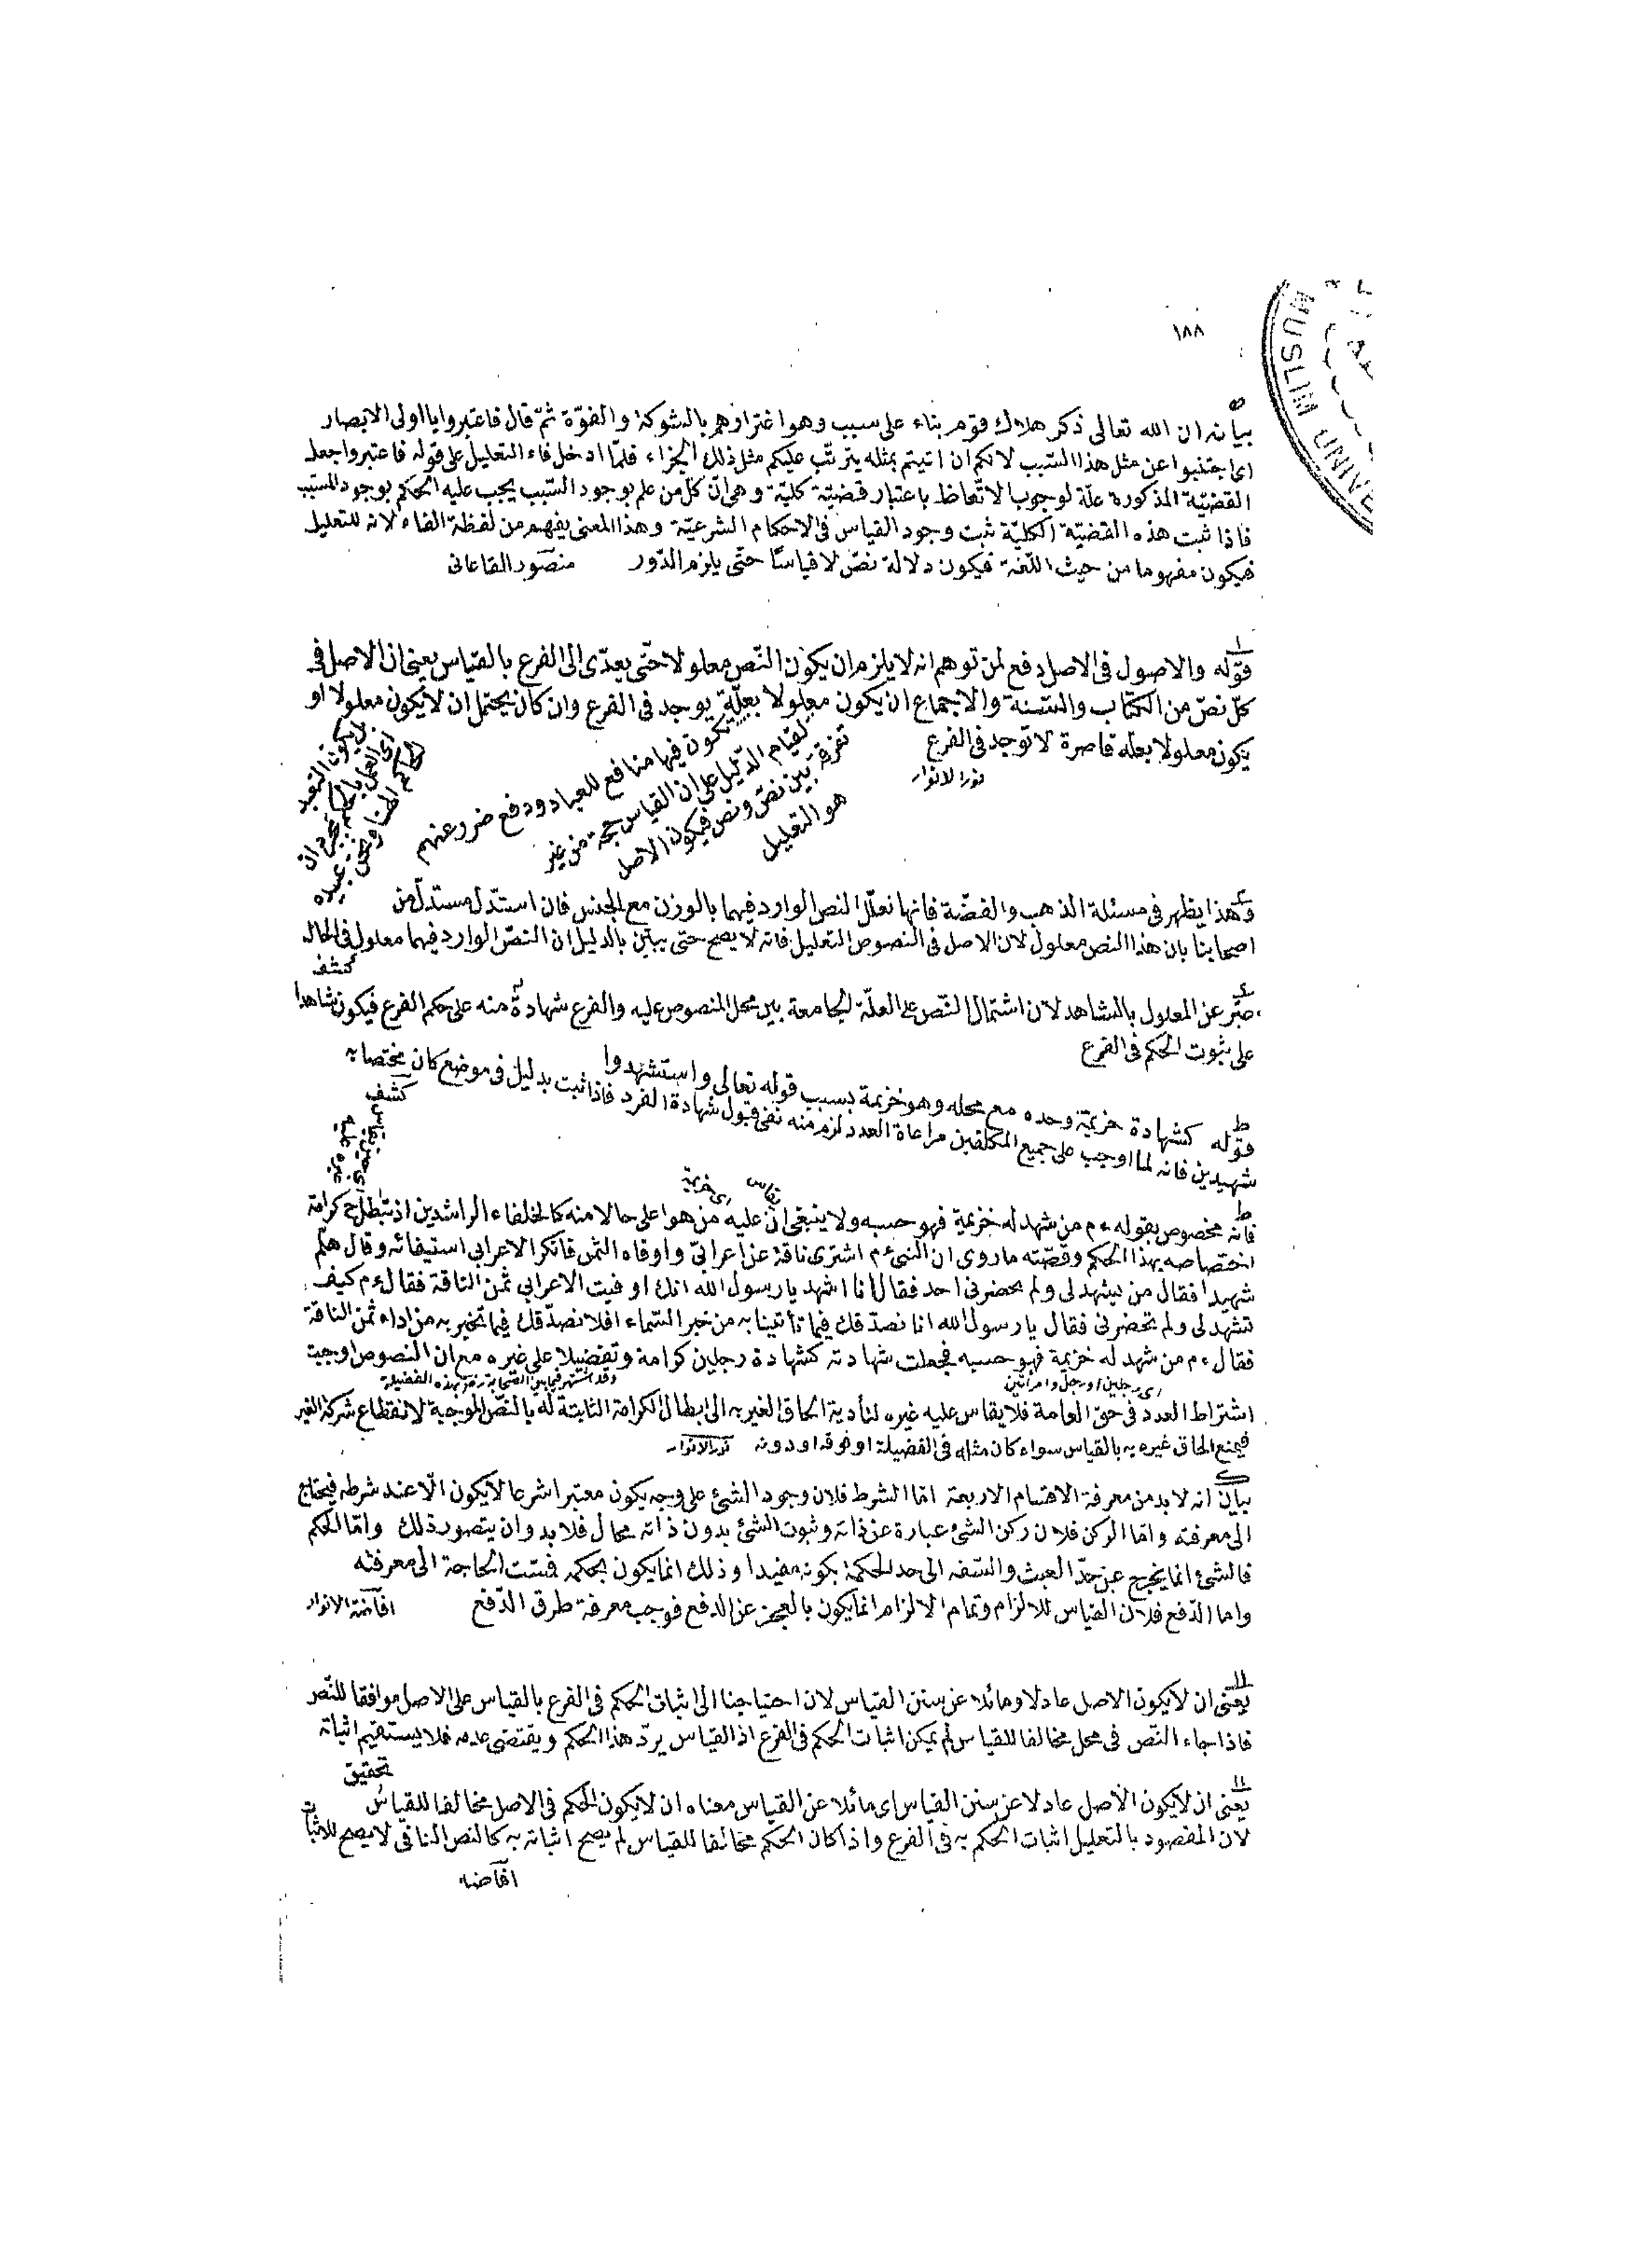 ١٨٨
MUSLIM UNIVE
بيانه ان الله تعالى ذكر هلاك قوم بناء على سبب وهو اغترارهم بالشوكة والقوّة ثمّ قال فاعتبروا يا اولى الابصار
اى اجتنبوا عن مثل هذا السّبب لانكم ان اتيتم بمثله يترتّب عليكم مثل ذلك الجزاء فلمّا ادخل فاء التعليل على قوله فاعتبروا جعل
القضيّة المذكورة علّة لوجوب الاتّعاظ باعتبار قضيّة كليّة وهى انّ كل من علم بوجود السّبب يجب عليه الحكم بوجود المسبّب
فاذا ثبت هذه القضيّة الكليّة ثبت وجود القياس فى الاحكام الشرعيّة وهذا المعنى يفهم من لفظة الفاء لانه للتعليل
فيكون مفهوما من حيث اللّغة فيكون دلالة نصّ لا قياسًا حتّى يلزم الدّور منصور القاءانى
قوله والاصول فى الاصل دفع لمن توهم انه لا يلزم ان يكون النّص معلولا حتّى يعدّى الى الفرع بالقياس يعنى ان الاصل فى
كلّ نصّ من الكتاب والسّنة والاجماع ان يكون معلولا بعلّة يوجد فى الفرع وان كان يحتمل ان لا يكون معلولا او
يكون معلولا بعلّة قاصرة لا توجد فى الفرع
نور الانوار
تكون فيها منافع للعباد ودفع ضرر عنهم
لقيام الدّليل على ان القياس حجة من غير
تفرقة بين نصّ ونص فيكون الاصل
هو التعليل
وهذا يظهر فى مسئلة الذهب والفضّة فانها نعلّل النص الوارد فيهما بالوزن مع الجنس فان استدّل مستدلّ من
اصحابنا بان هذا النص معلول لان الاصل فى النصوص التعليل فانه لا يصح حتى يبيّن بالدليل ان النصّ الوارد فيهما معلول فى الحال
كشف
عبّر عن المعلول بالشاهد لان اشتمال النّص على العلّة الجامعة بين محل المنصوص عليه والفرع شهادة منه على حكم الفرع فيكون شاهدا
على ثبوت الحكم فى الفرع
قوله كشهادة خزيمة وحده مع محله وهو خزيمة بسبب قوله تعالى واستشهدوا
شهيدين فانه لما اوجب على جميع المكلفين مراعاة العدد لزم منه نفى قبول شهادة الفرد فاذا ثبت بدليل فى موضع كان مختصا به
كشف
فانه مخصوص بقوله ءم من شهد له خزيمة فهو حسبه ولا ينبغى ان عليه من هو اعلى حالا منه كالخلفاء الراشدين اذ تبطل ح كرامة
اختصاصه بهذا الحكم وقصّته ما روى ان النبى ءم اشترى ناقة عن اعرابىّ واوفاه الثمن فانكر الاعرابى استيفائه وقال هلمّ
شهيدا فقال من يشهد لى ولم يحضرنى احد فقال انا اشهد يا رسول الله انك اوفيت الاعرابى ثمن الناقة فقال ءم كيف
تشهد لى ولم تحضرنى فقال يا رسول الله انا نصدّقك فيما تأتينا به من خبر السّماء افلا نصدّقك فيما تخبر به من اداء ثمن الناقة
فقال ءم من شهد له خزيمة فهو حسبه فجعلت شهادته كشهادة رجلين كرامة وتفضيلا على غيره مع ان النصوص اوجبت
اى رجلين او رجل وامرأتين
وقد اشتهر فيما بين الصّحابة رضى بهذه الفضيلة
اشتراط العدد فى حقّ العامة فلا يقاس عليه غيره لتأدية الحاق الغير به الى ابطال الكرامة الثابتة له بالنصّ الموجبة لانقطاع شركة الغير
فيمنع الحاق غيره به بالقياس سواء كان مثله فى الفضيلة او فوقه او دونه نور الانوار
بيان انه لا بد من معرفة الاقسام الاربعة امّا الشرط فلان وجود الشئ على وجه يكون معتبرا شرعا لا يكون الّا عند شرطه فيحتاج
الى معرفته وامّا الركن فلان ركن الشئ عبارة عن ذاته وثبوت الشئ بدون ذاته محال فلا بد وان يتصور ذلك وامّا الحكم
فالشئ انما يخرج عن حدّ العبث والسّفه الى حد الحكمة بكونه مفيدا وذلك انما يكون بحكمه فمسّت الحاجة الى معرفته
واما الدّفع فلان القياس للالزام وتمام الالزام انما يكون بالعجز عن الدفع فوجب معرفة طرق الدّفع افاضة الانوار
يعنى ان لا يكون الاصل عادلا ومائلا عن سنن القياس لان احتياجنا الى اثبات الحكم فى الفرع بالقياس على الاصل موافقا للنّص
فاذا جاء النّص فى محل مخالفا للقياس لم يمكن اثبات الحكم فى الفرع اذ القياس يردّ هذا الحكم ويقتضى عدمه فلا يستقيم اثباته
تحقيق
يعنى ان لا يكون الاصل عادلا عن سنن القياس اى مائلا عن القياس معناه ان لا يكون الحكم فى الاصل مخالفا للقياس
لان المقصود بالتعليل اثبات الحكم به فى الفرع واذا كان الحكم مخالفا للقياس لم يصح اثباته به كالنص النافى لا يصح للاثبات
افاضه